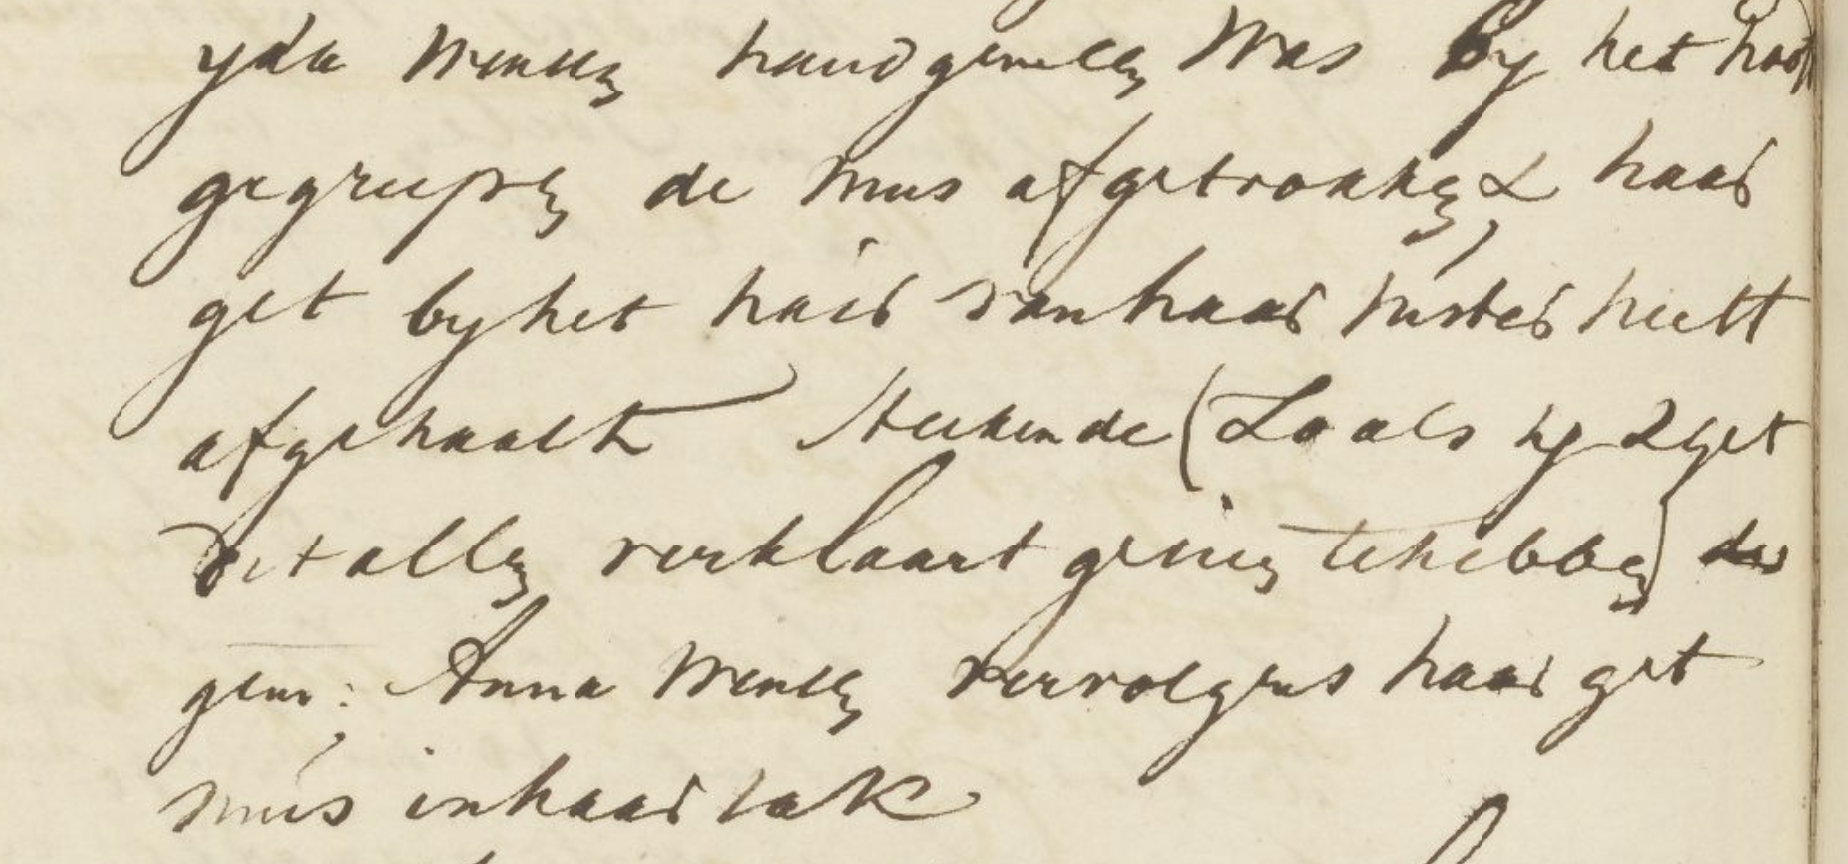 yda Wentel handgemeen was by het hooft
gegreepen de mus afgetrokken, & haar
get by het hair van haar suster heeft
afgehaalt Steekende (Zo als zy 2 get
dit alles verklaart gesien te hebben) de
gem: Anna Wentel vervolgens haar get
muts in haar sak